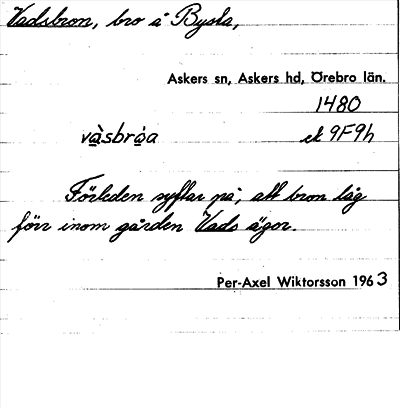 Vadsbron, bro å Bysta,
Askers sn, Askers hd, Örebro län.
1480
vàsbróa ek 9F9h
Förleden syftar på, att bron låg
förr inom gården Vads ägor.
Per-Axel Wiktorsson 1963